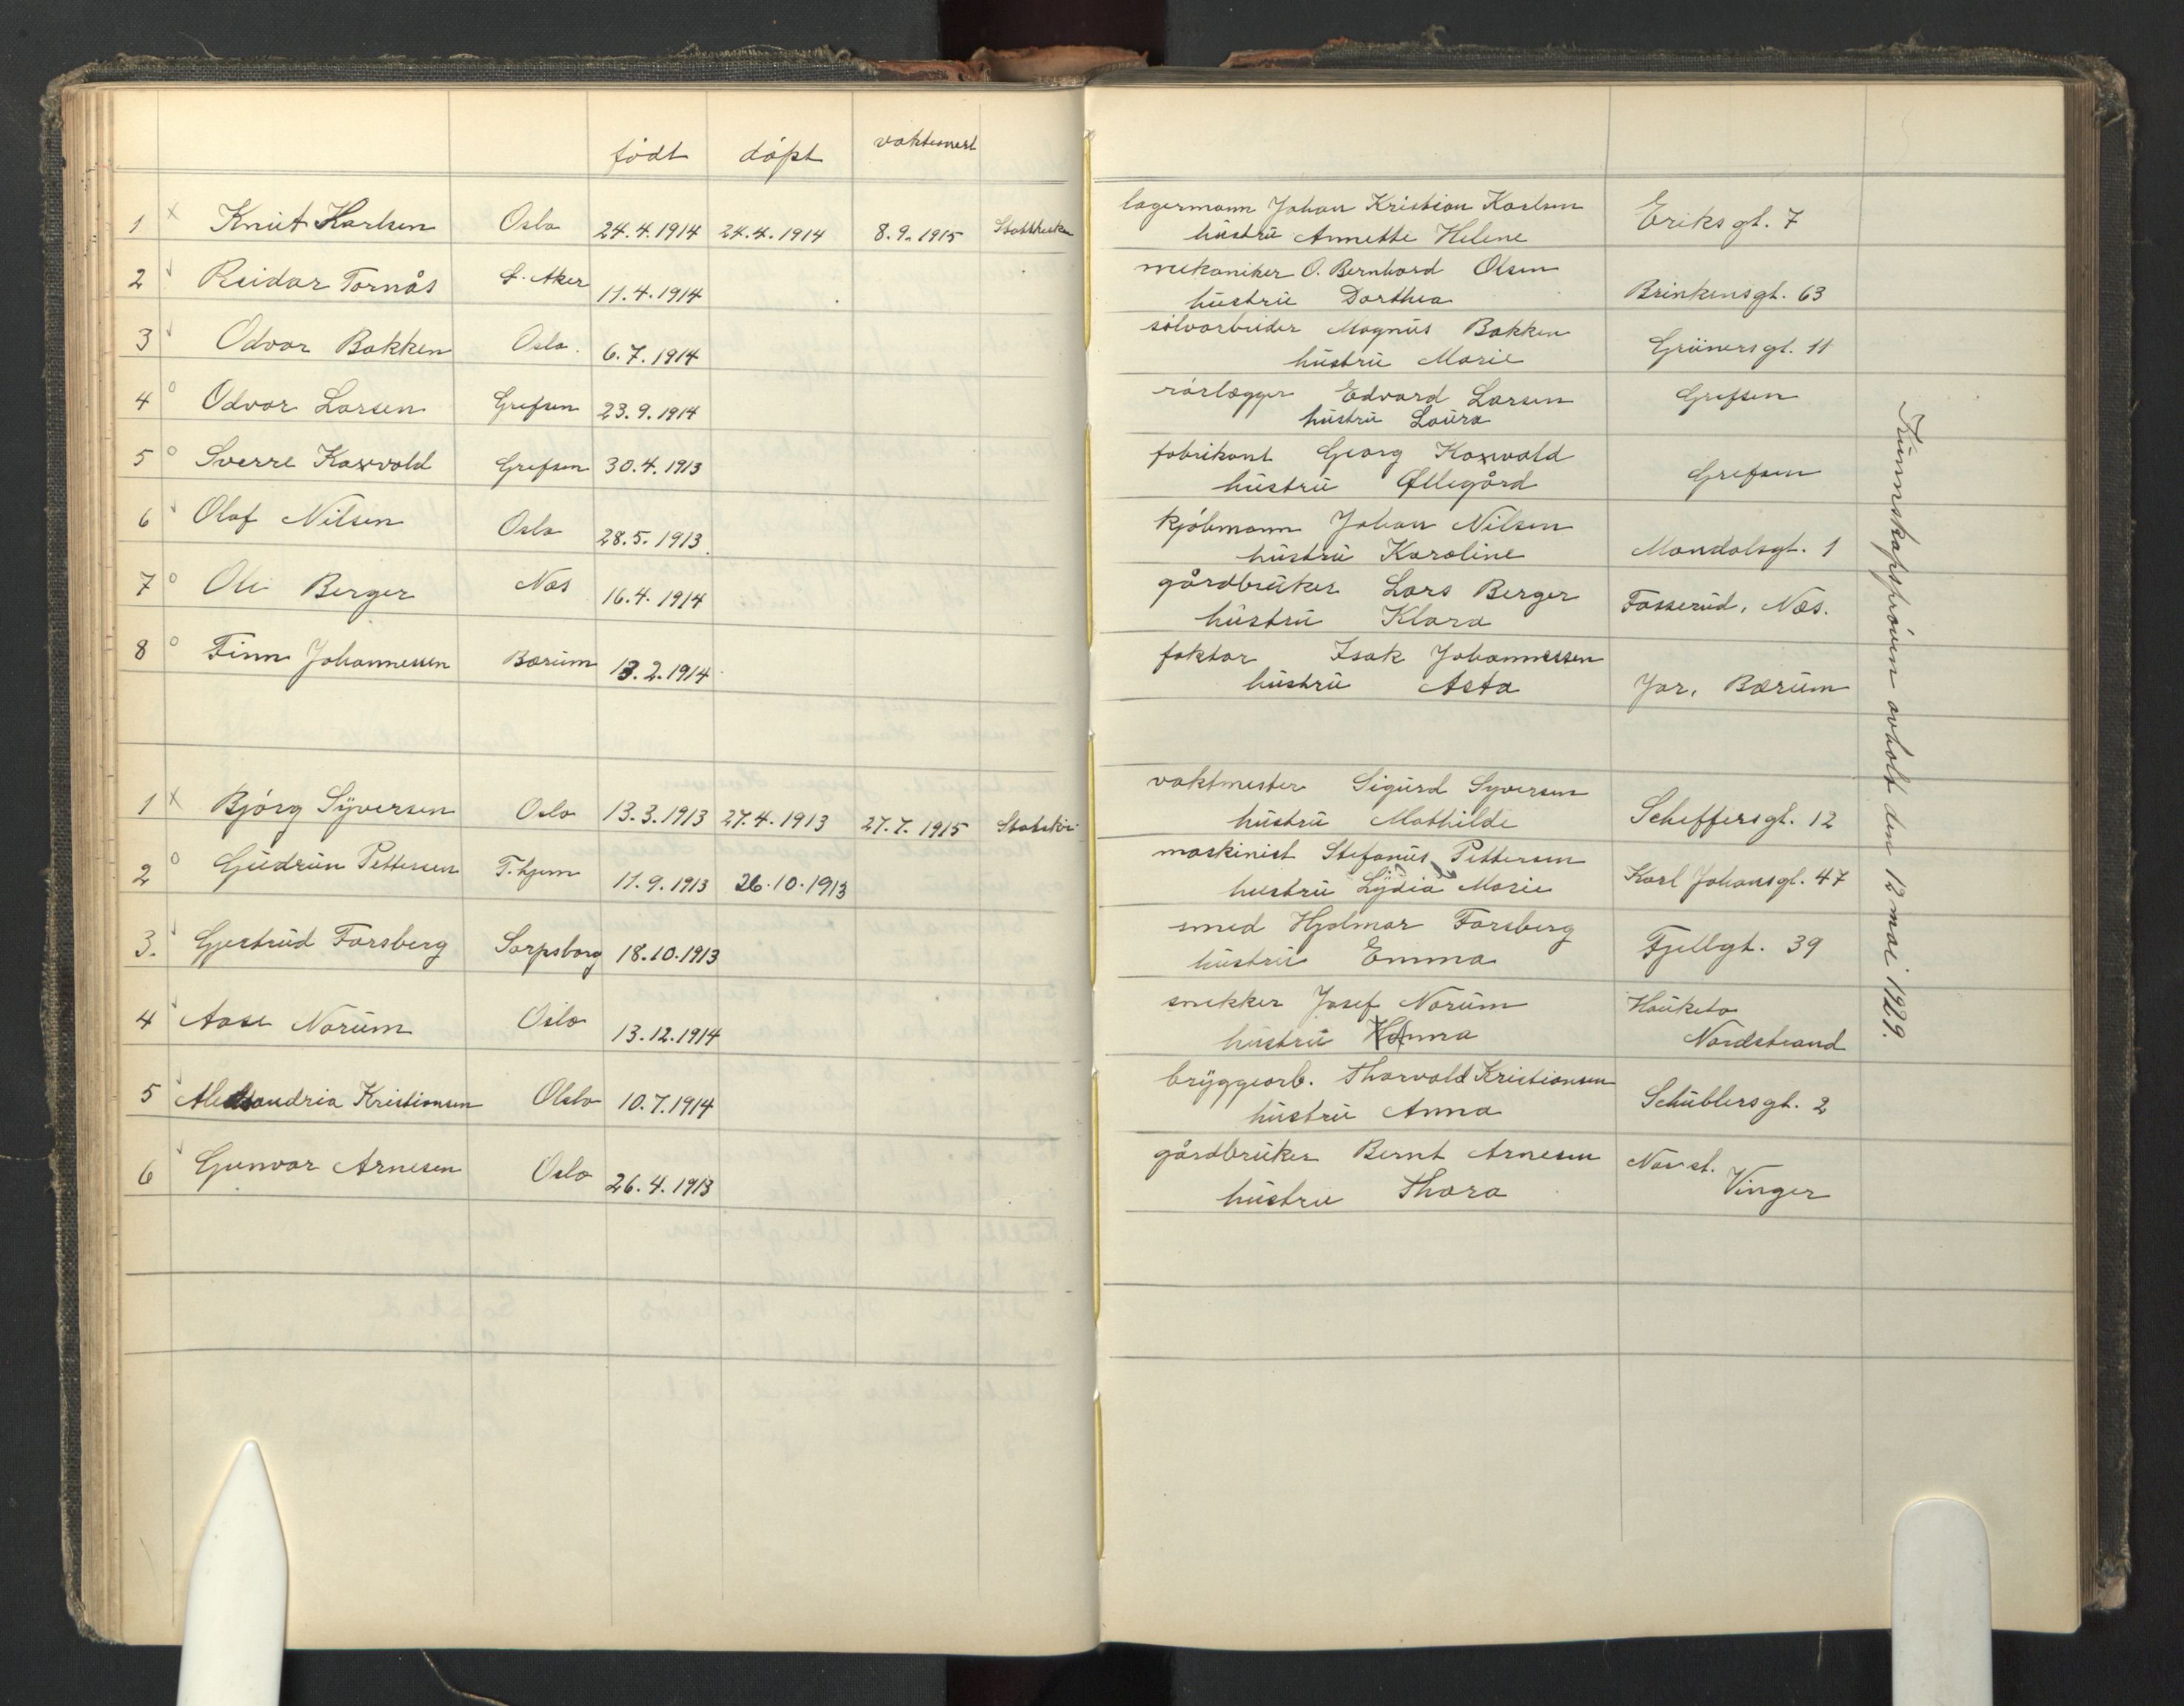 født døpt vaktionert
1 x Knut Karlsen Oslo 24.4.1914 24.4.1914 8.9.1915
2 Reidar Tornås Ø. Aker 11.4.1914
3 Odvar Bakken Oslo. 6.7.1914
4 o Odvar Larsen Grefsen 23.9.1914
5 o Sverre Kaxrvold Grefsen 30.4.1913
6 Olaf Nilsen Oslo 28.5.1913
7 o Ole Berger Nes 16.4.1914
8 o Finn Johannessen Bærum 13.2.1914
1 x Bjørg Syversen Oslo 13.3.1913 27.4.1913 27.7.1915
2 o Gudrun Pettersen T.hjem 11.9.1913 26.10.1913
3. Gjertrud Forsberg Sarpsborg 18.10.1913
4 Aase Norum Oslo 13.12.1914
5 Aleksandria Kristiansen Oslo 10.7.1914
6 Gunvor Arnesen Oslo 26.4.1913
lagermann Johan Kristian Karlsen
hustru Annette Helene Eriksgt. 7
mekaniker O. Bernhard Olsen
hustru Dorthea Brinkensgt. 63
sølvarbeider Magnus Bakken
hustru Marie Grünersgt. 11
rørlægger Edvard Larsen Grefsen
hustru Laura
fabrikant Georg Kaxrvold
hustru Øllegård Grefsen
kjøbmann Johan Nilsen
hustru Karoline Mandalsgt. 1
gårdbruker Lars Berger
hustru Klara Fosserud, Næs.
faktor Isak Johannessen
hustru Asta Jar, Bærum
vaktmester Sigurd Syversen
hustru Mathilde Scheffersgt. 12
maskinist Stefanus Pettersen
hustru Lydia Marie Karl Johansgt. 47
smed Hjalmar Forsberg
hustru Emma Fjellgt. 39
snekker Josef Norum Hauketo
hustru Anna Nordstrand
bryggearb. Thorvald Kristiansen
hustru Anna Schüblersgt. 2
gårdbruker Bernt Arnesen
hustru Thora Vinger
Kunnskapsprøven avholdt den 12 mai 1929.